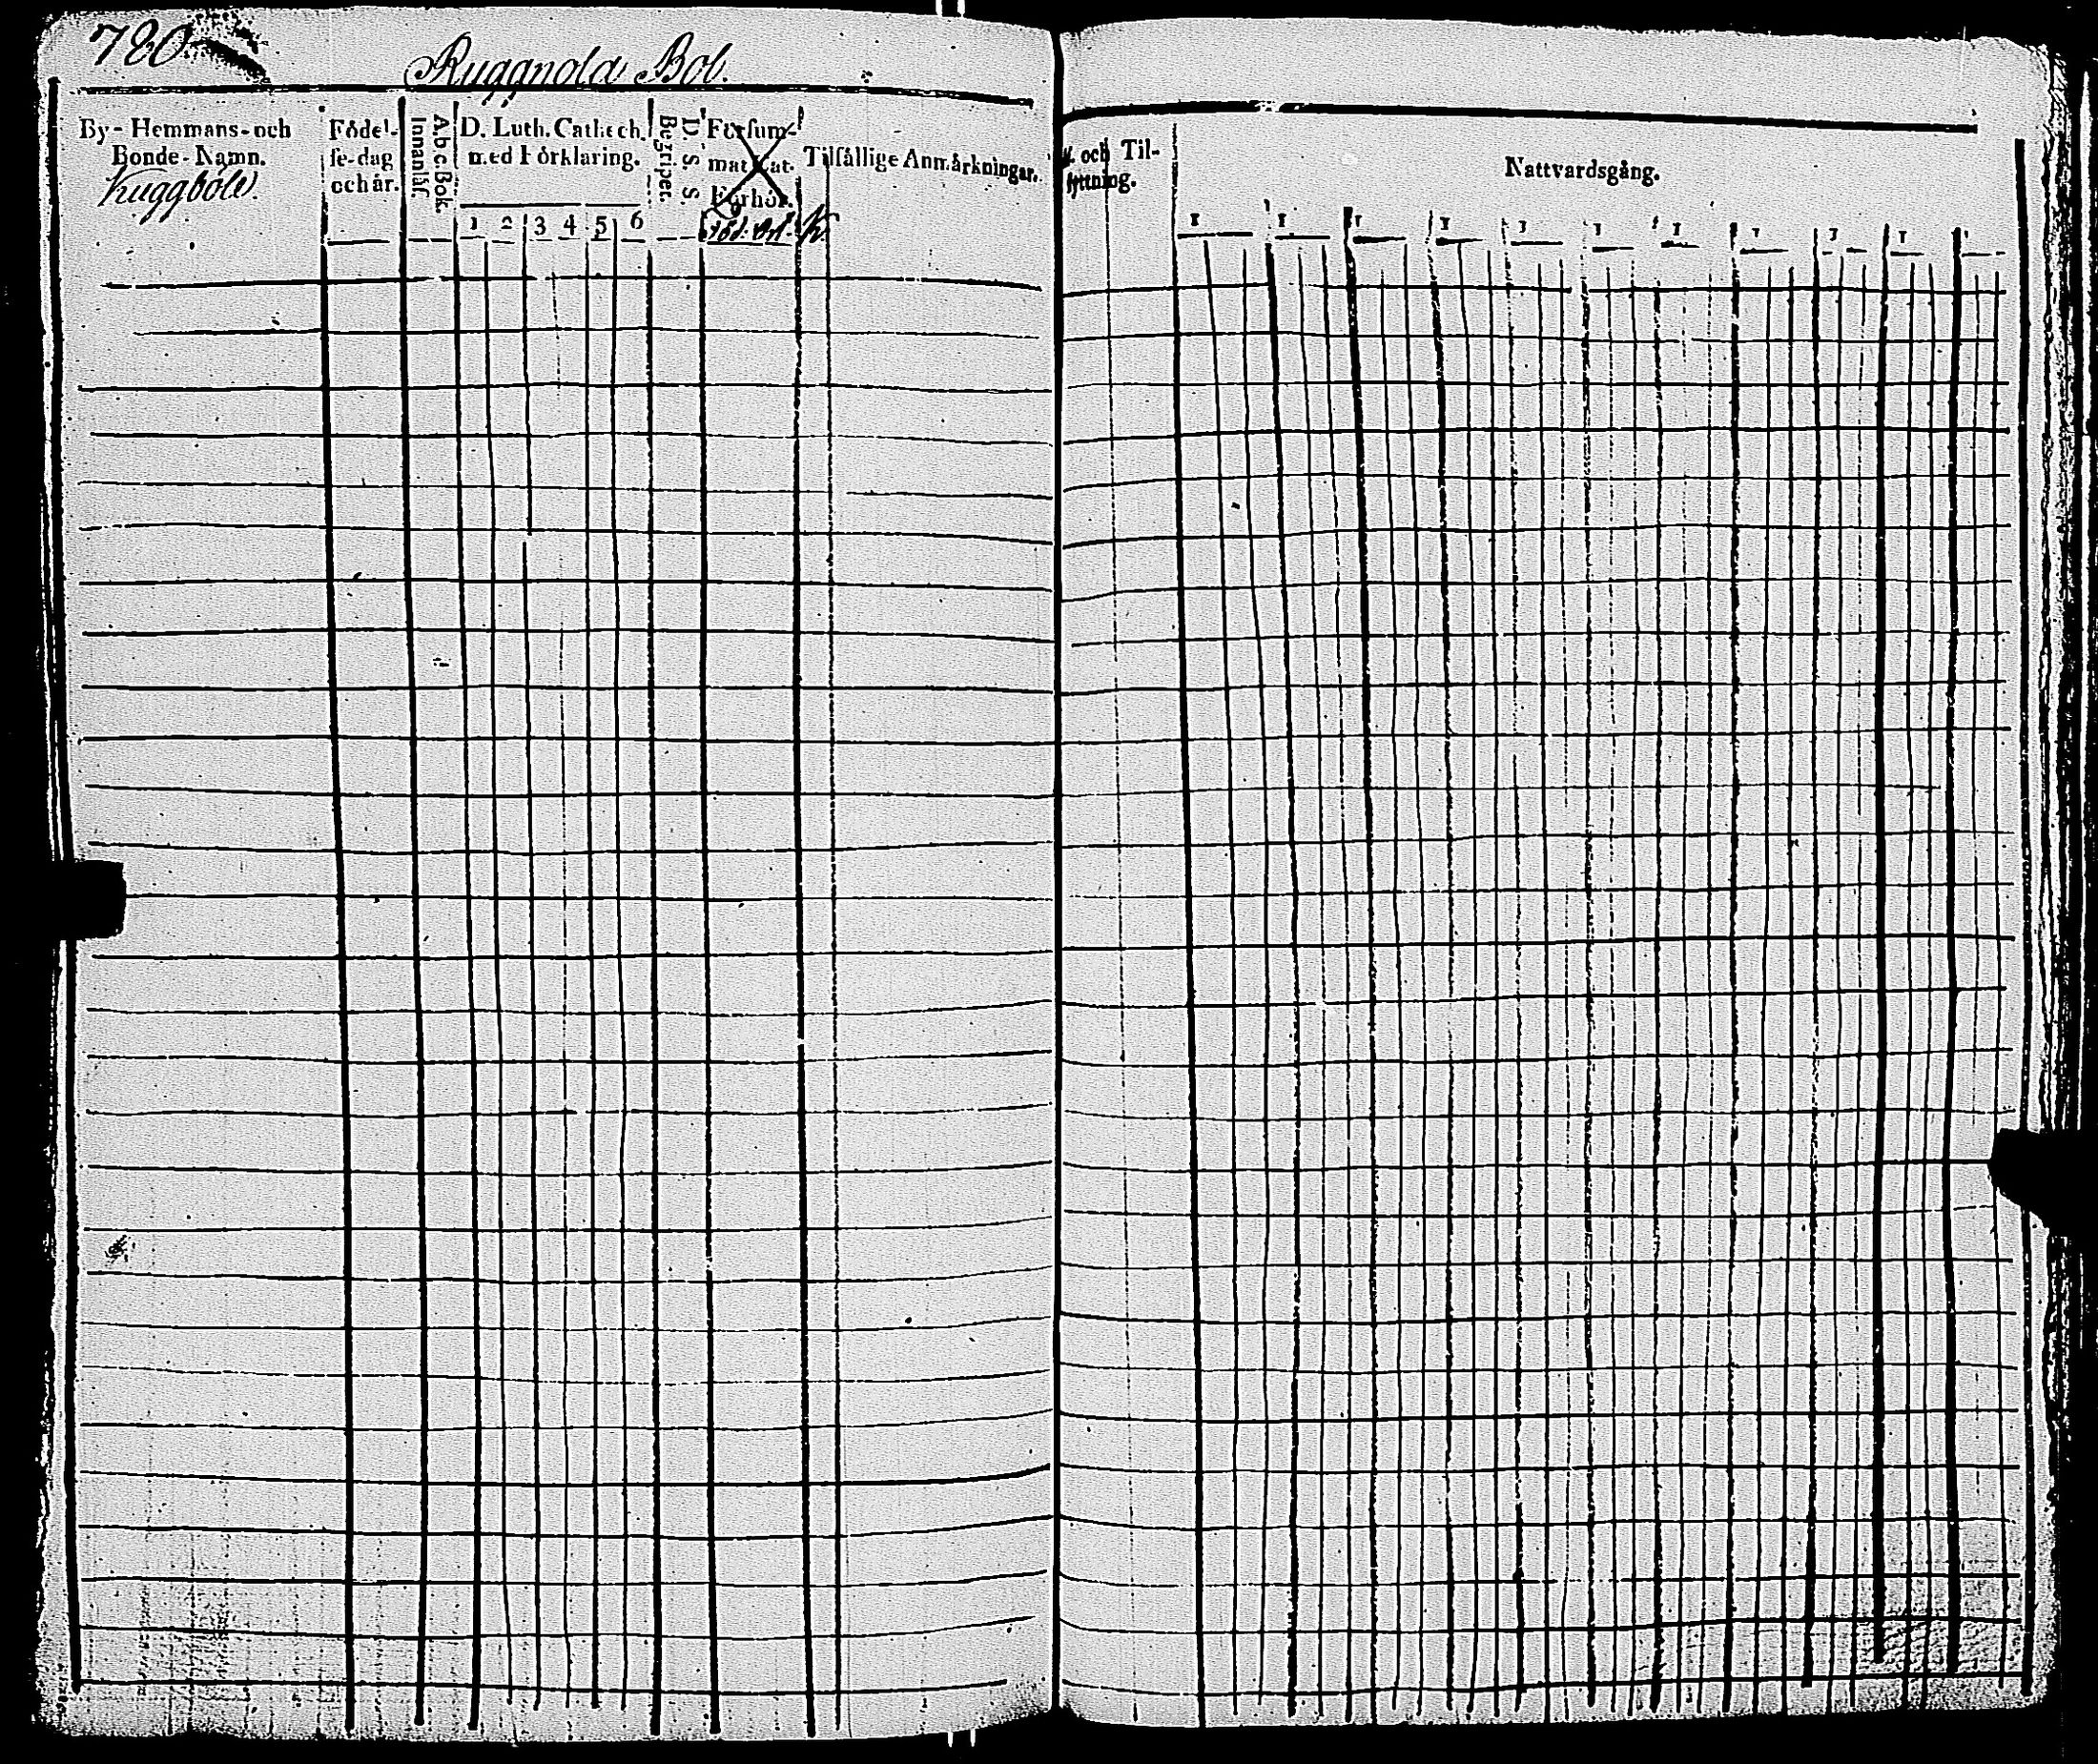 780
Ruggnola Bol.
By- Hemmans- och
Bonde-Namn.
Kuggböle.
Födel-
se-dag
och år.
A.b.c-Bok.
Innanläs.
D. Luth. Catech.
med Förklaring.
1 2 3 4 5 6
D. S. S.
Begripet.
Försum-
mat Cat.
Förhör.
Tilfällige Anmärkningar.
och Til-
flyttning.
Nattvardsgång.